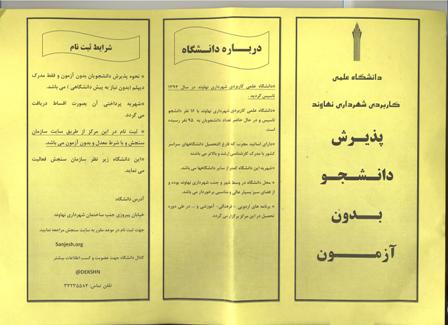 دانشگاه علمی
کاربردی شهرداری نهاوند
پذیرش
دانشجو
بدون
آزمون
درباره دانشگاه
*دانشگاه علمی کاربردی شهرداری نهاوند در سال ۱۳۹۲
تاسیس گردید.
*دانشگاه علمی کاربردی شهرداری نهاوند با ۱۶ نفر دانشجو
تاسیس و در حال حاضر تعداد دانشجو به ۹۵۰ نفر رسیده
است
*دارای اساتید مجرب که فارغ التحصیل دانشگاههای سراسر
کشور با مدرک کارشناسی ارشد و بالاتر می باشند
*شهریه این دانشگاه کمتر از سایر دانشگاهها می باشد.
* محل دانشگاه در وسط شهر و جنب شهرداری نهاوند بوده و
از فضای سبز بسیار عالی و مناسبی برخوردار می باشد.
* برنامه های اردویی - فرهنگی- آموزشی و .. در طی دوره
تحصیل در این مرکز برگزار می گردد.
شرایط ثبت نام
* نحوه پذیرش دانشجویان بدون آزمون و فقط مدرک
دیپلم (بدون نیاز به پیش دانشگاهی) می باشد.
*شهریه پرداختی آن بصورت اقساط دریافت
می گردد.
* ثبت نام در این مرکز از طریق سایت سازمان
سنجش و با شرط معدل و بدون آزمون می باشد.
*این دانشگاه زیر نظر سازمان سنجش فعالیت
می نماید
آدرس دانشگاه:
خیابان پیروزی جنب ساختمان شهرداری نهاوند
جهت ثبت نام در موعد مقرر به سایت سنجش مراجعه نمایید
Sanjesh.org
کانال دانشگاه جهت عضویت و کسب اطلاعات بیشتر
@DEKSHN
تلفن تماس: